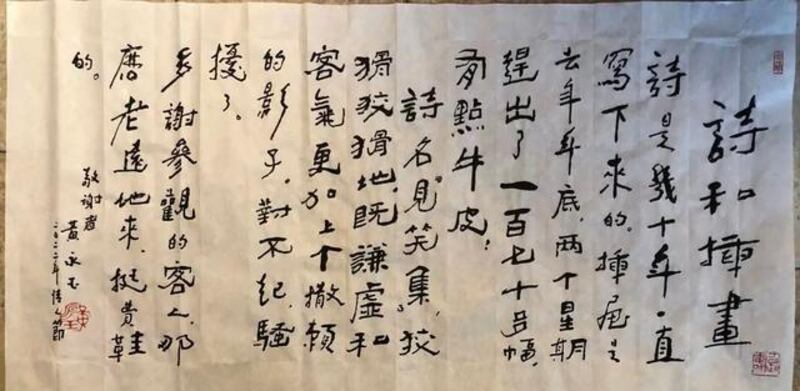 詩和插畫
詩是幾十年一直
寫下來的。插画是
去年年底，两个星期
趕出了一百七十多幅，
有點牛皮；
詩名見笑集。狡
猾狡猾地，既謙虛和
客氣更加上个撒賴
的影子。對不起，騷
擾了。
多謝參觀的客人，那
麽老遠地來，挺費鞋
的。
敬謝者
黃永玉
二〇二二年情人節